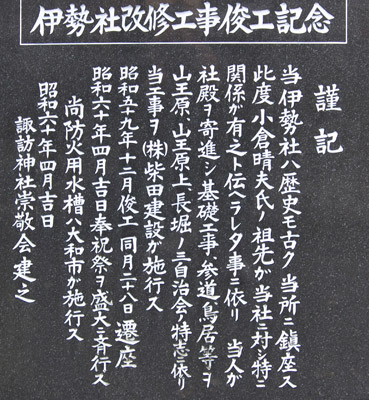 伊勢社改修工事俊工記念
謹記
当伊勢社ハ歴史モ古ク当所ニ鎮座ス
此度小倉晴夫氏ノ祖先が当社ニ対シ特ニ
関係が有之ト伝ヘラレタ事ニ依り 当人が
社殿ヲ寄進シ基礎工事、参道鳥居等ヲ
山王原、山王原上、長堀ノ三自治会ノ特志ニ依り
当工事ヲ(株)柴田建設が施行ス
昭和五十九年十二月俊工 同月二十八日遷座
昭和六十年四月吉日奉祝祭ヲ盛大ニ斉行ス
尚防火用水槽ハ大和市が施行ス
昭和六十年四月吉日
諏訪神社崇敬会建之